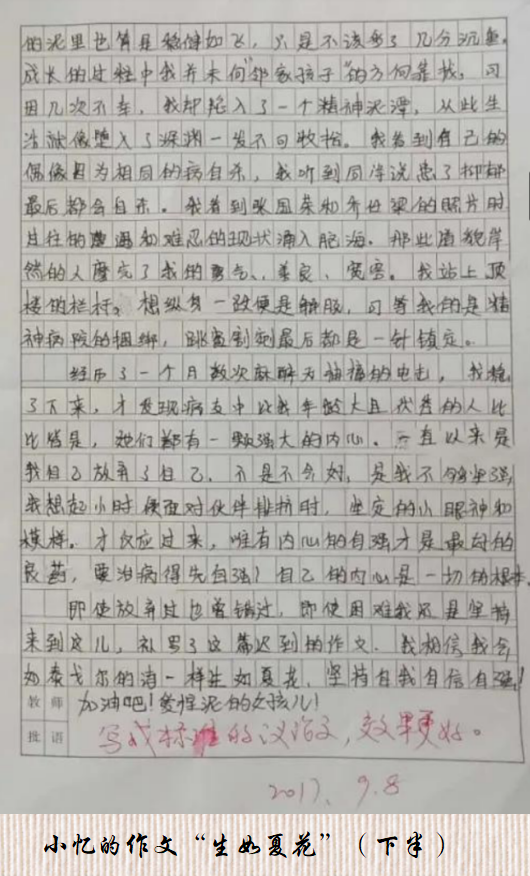 的泥里也算是稳健如飞，只是不该多了几分沉重。
成长的过程中我并未向“邻家孩子”的方向靠拢，可
因几次不幸，我却陷入了一个精神泥潭，从此生
活就像堕入了深渊一发不可收拾。我看到自己的
偶像因为相同的病自杀，我听到同学说患了抑郁
最后都会自杀。我看到张国荣和乔任梁的照片时
过往的遭遇和难忍的现状涌入脑海。那些道貌岸
然的人磨完了我的勇气、善良、宽容。我站上顶
楼的栏杆，想纵身一跃便是解脱，可等我的是精
神病院的捆绑，跳窗割剜最后都是一针镇定。
经历了一个月数次麻醉无抽搐的电击，我
了下来，才发现病友中比我年龄大且优秀的人比
比皆是，她们都有一颗强大的内心。一直以来是
我自己放弃了自己，不是不会好，是我不够坚强，
我想起小时候面对伙伴排挤时，坚定的小眼神和
模样。才反应过来，唯有内心的自强才是最好的
良药，要治病得先自强！自己的内心是一切的根本。
即使放弃过也曾错过，即使困难我还是坚持
来到这儿，补写了这篇迟到的作文。我相信我会
如泰戈尔的诗一样生如夏花，坚持自我自信自强！
加油吧！爱捏泥的女孩儿！
教师
批语
写成标准的议论文，效果更好。
2017、9.8
小忆的作文“生如夏花”（下半）